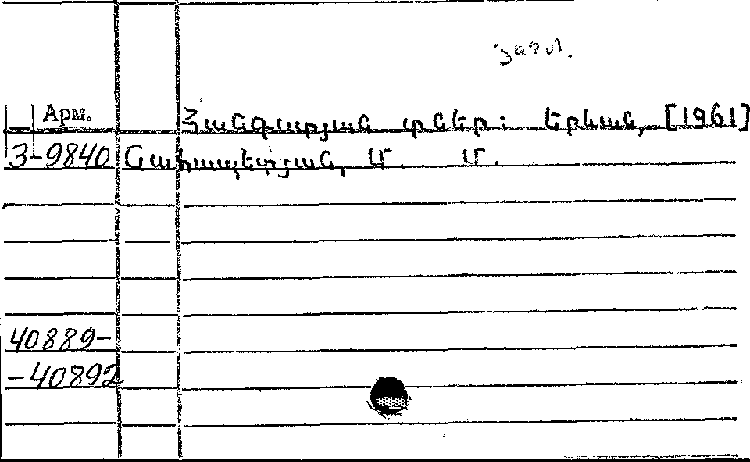 загл.
Арм. Հանգստյան տներ: Երևան, [1961]
3-9840 Նահապետյան, Մ. Մ.
40889-
-40892